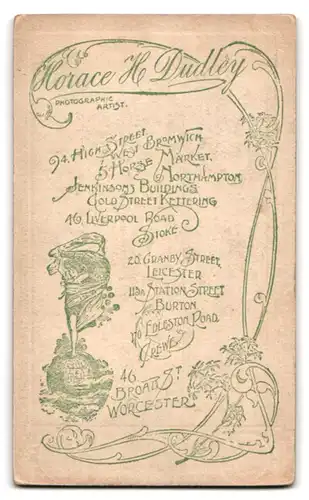 Horace H Dudley
PHOTOGRAPHIC
ARTIST.
94, HIGH STREET,
WEST BROMWICH
5 HORSE MARKET,
NORTHAMPTON
JENKINSONS BUILDINGS
GOLD STREET KETTERING
46, LIVERPOOL ROAD
STOKE
20, GRANBY STREET,
LEICESTER
113A STATION STREET
BURTON
EDLESTON ROAD
CREWE
46
BROAD ST
WORCESTER